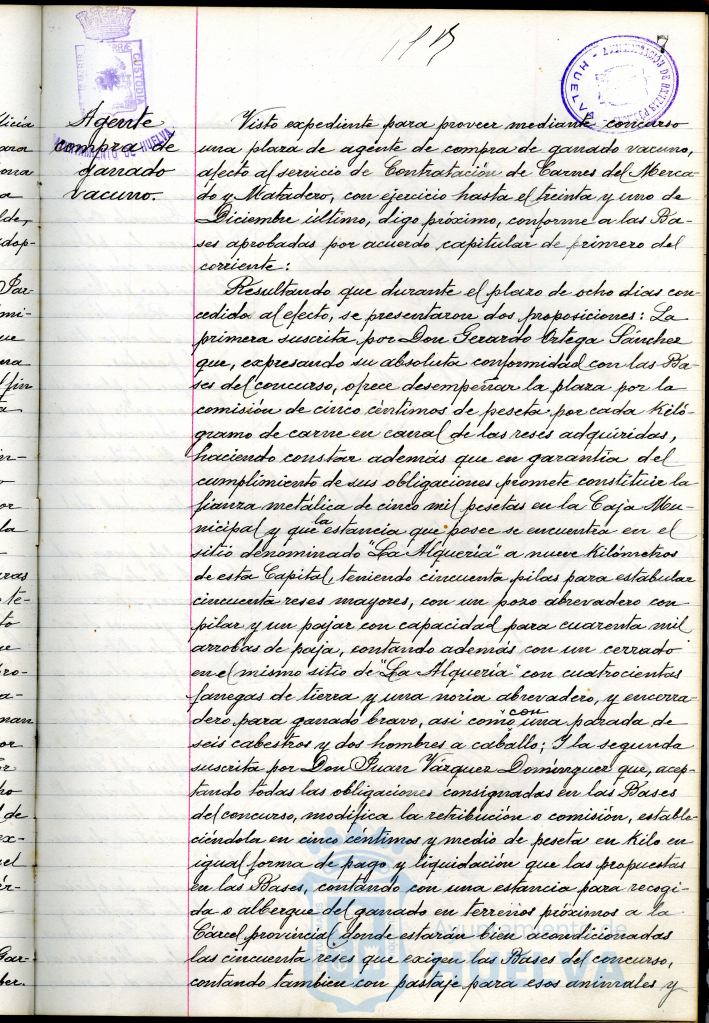 7
HUELVA
Agente
compra de
ganado
vacuno.
AYUNTAMIENTO DE HUELVA
Visto expediente para proveer mediante concurso
una plaza de agente de compra de ganado vacuno,
afecto al servicio de Contratación de Carnes del Merca-
do y Matadero, con ejercicio hasta el treinta y uno de
Diciembre último, digo próximo, conforme a las Ba-
ses aprobadas por acuerdo capitular de primero del
corriente:
Resultando que durante el plazo de ocho dias con-
cedido al efecto, se presentaron dos proposiciones: La
primera suscrita por Don Gerardo Ortega Sánchez
que, expresando su absoluta conformidad con las Ba-
ses del concurso, ofrece desempeñar la plaza por la
comisión de cinco céntimos de peseta por cada kiló-
gramo de carne en canal de las reses adquiridas,
haciendo constar además que en garantía del
cumplimiento de sus obligaciones promete constituir la
fianza metálica de cinco mil pesetas en la Caja Mu-
nicipal y que la estancia que posee se encuentra en el
sitio denominado "La Alquería" a nueve kilómetros
de esta Capital, teniendo cincuenta pilas para estabular
cincuenta reses mayores, con un pozo abrevadero con
pilar y un pajar con capacidad para cuarenta mil
arrobas de paja, contando además con un cerrado
en el mismo sitio de "La Alquería" con cuatrocientas
fanegas de tierra y una noria abrevadero, y encerra-
dero para ganado bravo, asi como con una parada de
seis cabestros y dos hombres a caballo; Y la segunda
suscrita por Don Juan Vázquez Domínguez que, acep-
tando todas las obligaciones consignadas en las Bases
del concurso, modifica la retribución o comisión, estable-
ciéndola en cinco céntimos y medio de peseta en kilo en
igual forma de pago y liquidación que las propuestas
en las Bases, contando con una estancia para recogi-
da o albergue del ganado en terrenos próximos a la
Cárcel provincial, donde estarán bien acondicionadas
las cincuenta reses que exigen las Bases del concurso,
contando tambien con pastaje para esos animales y
Ayuntamiento de
HUELVA